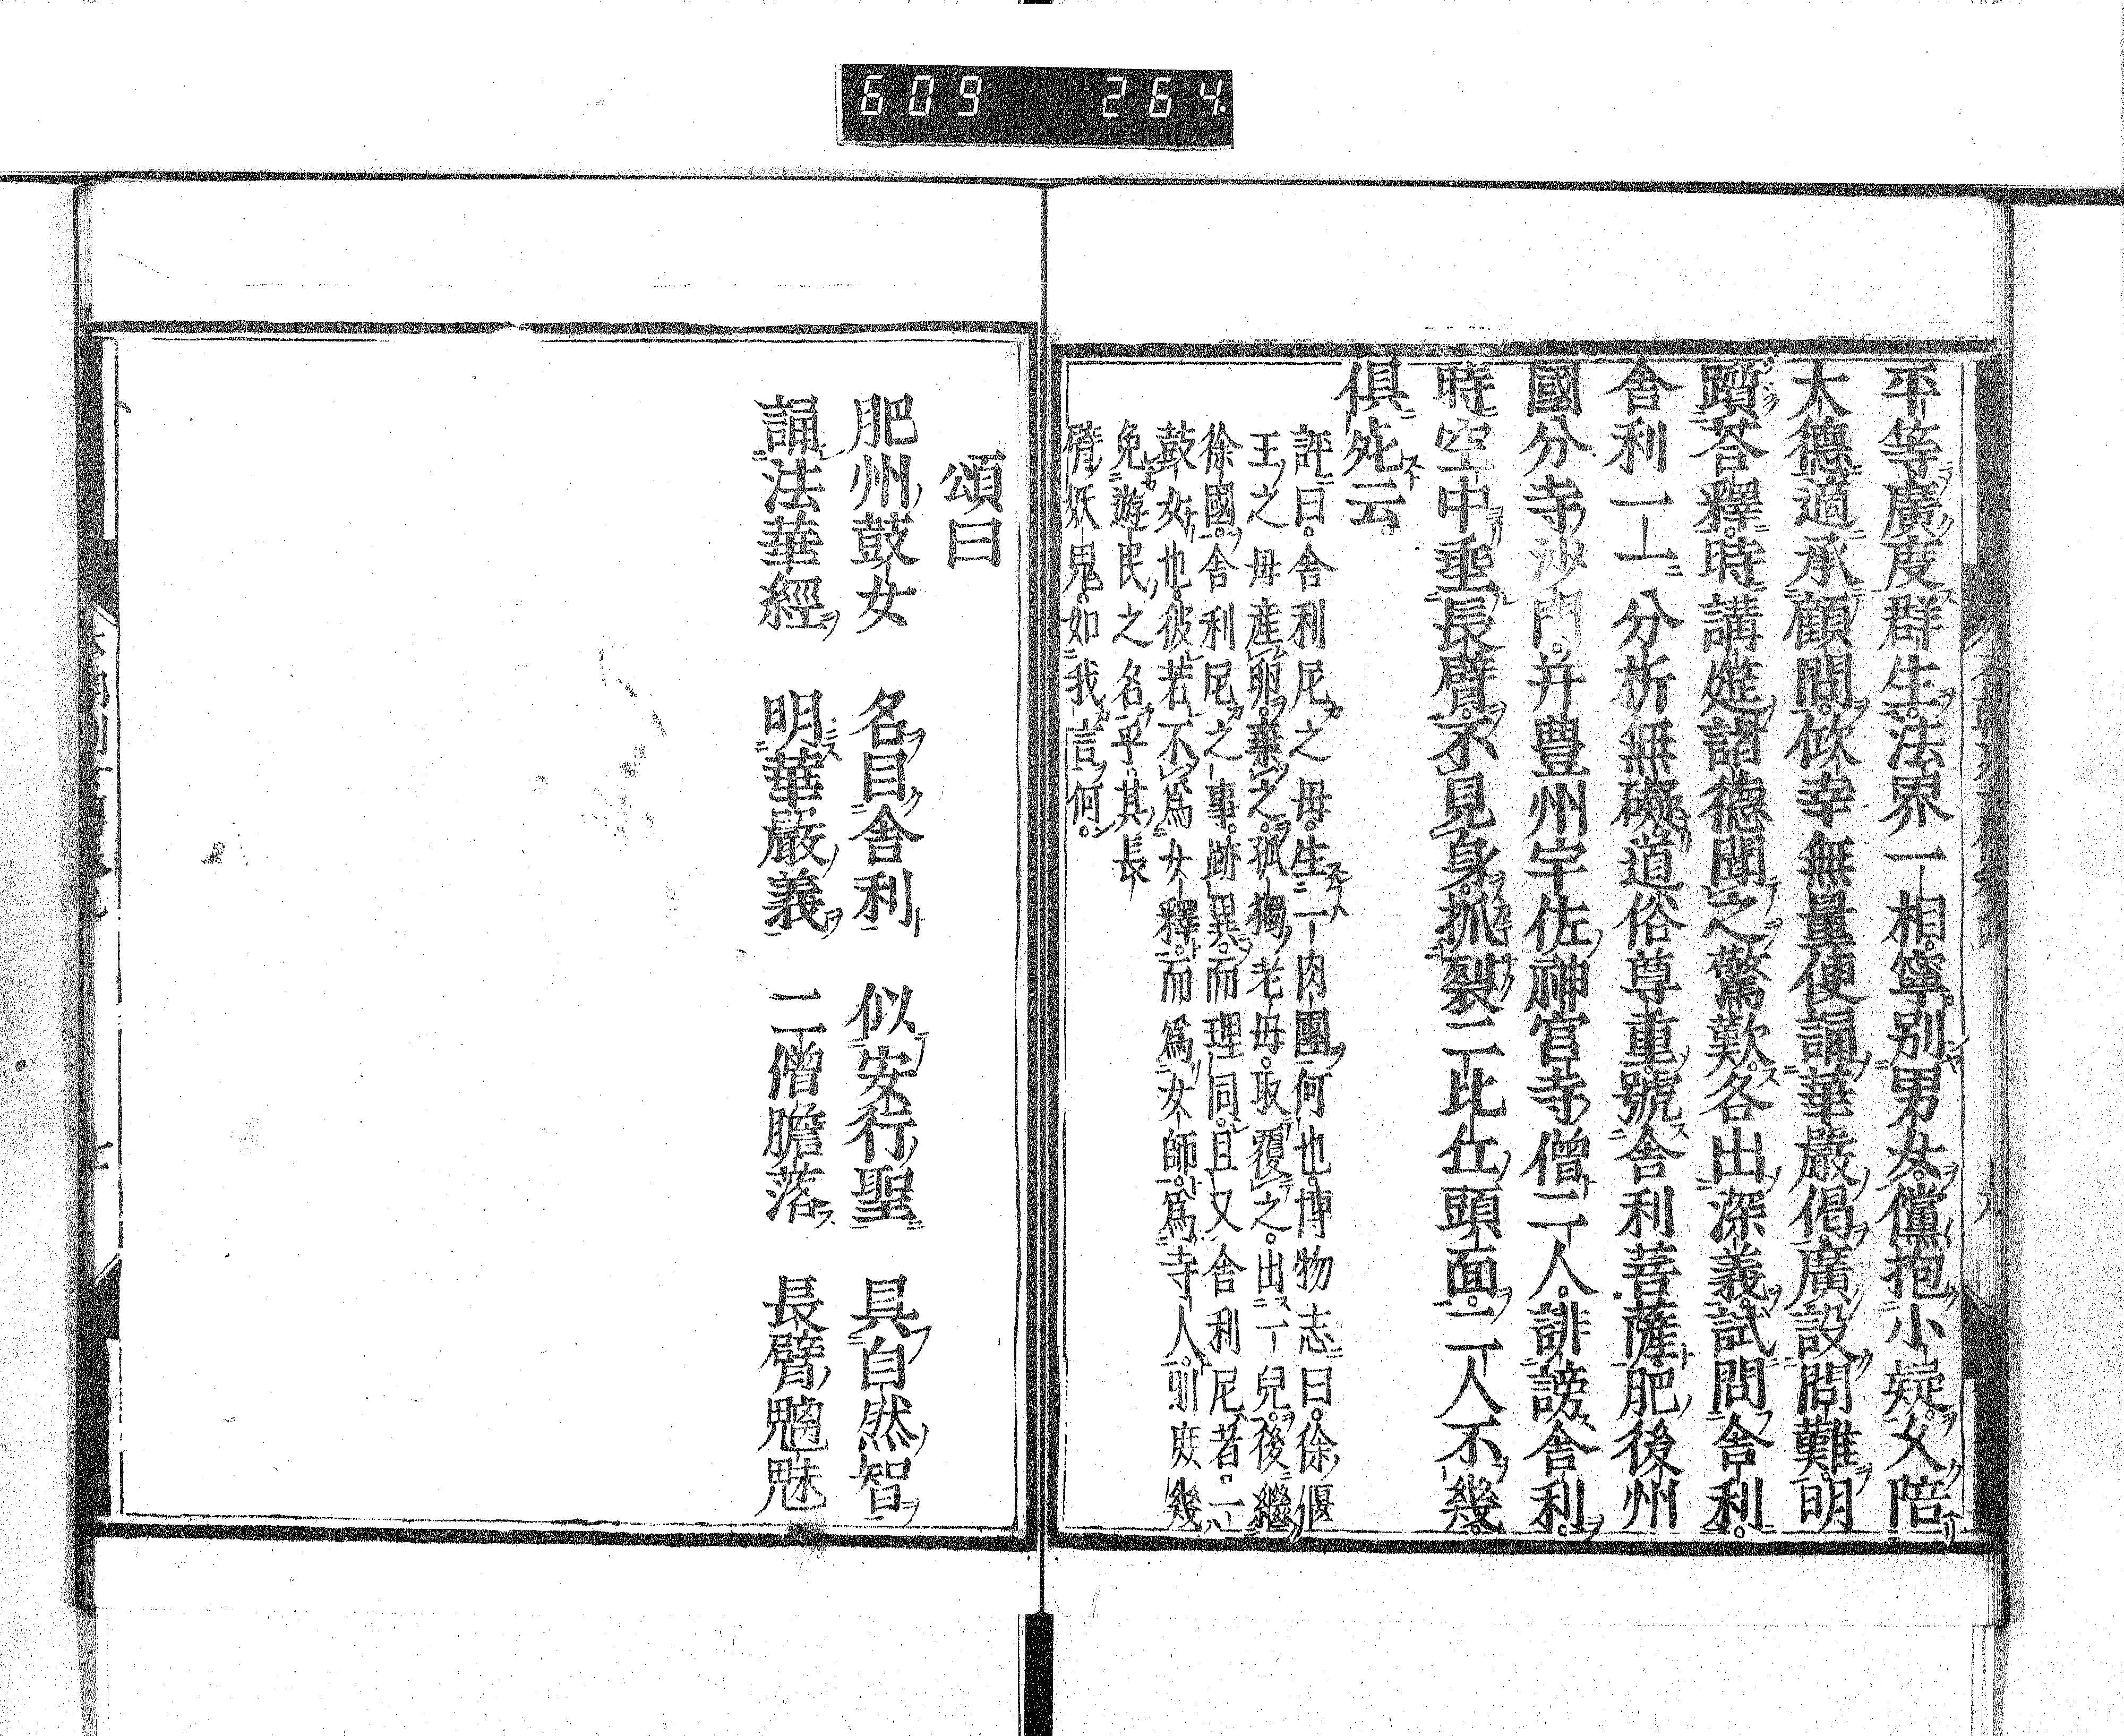 609 264
平等廣度群生法界一相寧別男女儻抱小疑父陪
大德適承顧問欣幸無量便誦華嚴偈廣設問難明
賾荅釋時講筵諸德聞之驚歎各出深義試問舍利
舍利一一分析無礙道俗尊重號舍利菩薩肥後州
國分寺沙門并豊州宇佐神宮寺僧二人誹謗舍利
時空中垂長臂不見身抓裂二比丘頭面二人不幾
俱死云
評曰舍利尼之母生一肉團何也博物志曰徐偃
王之母産卵棄之孤獨老母取覆之出一兒後繼
徐國舍利尼之事跡異而理同且又舍利尼者一
鼓女也彼若不爲女釋而爲女師爲寺人則庶幾
免遊民之名乎其長
臂妖鬼如我言何
頌曰
肥州鼓女 名目舍利 似安行聖 具自然智
誦法華經 明華嚴義 二僧膽落 長臂魑魅